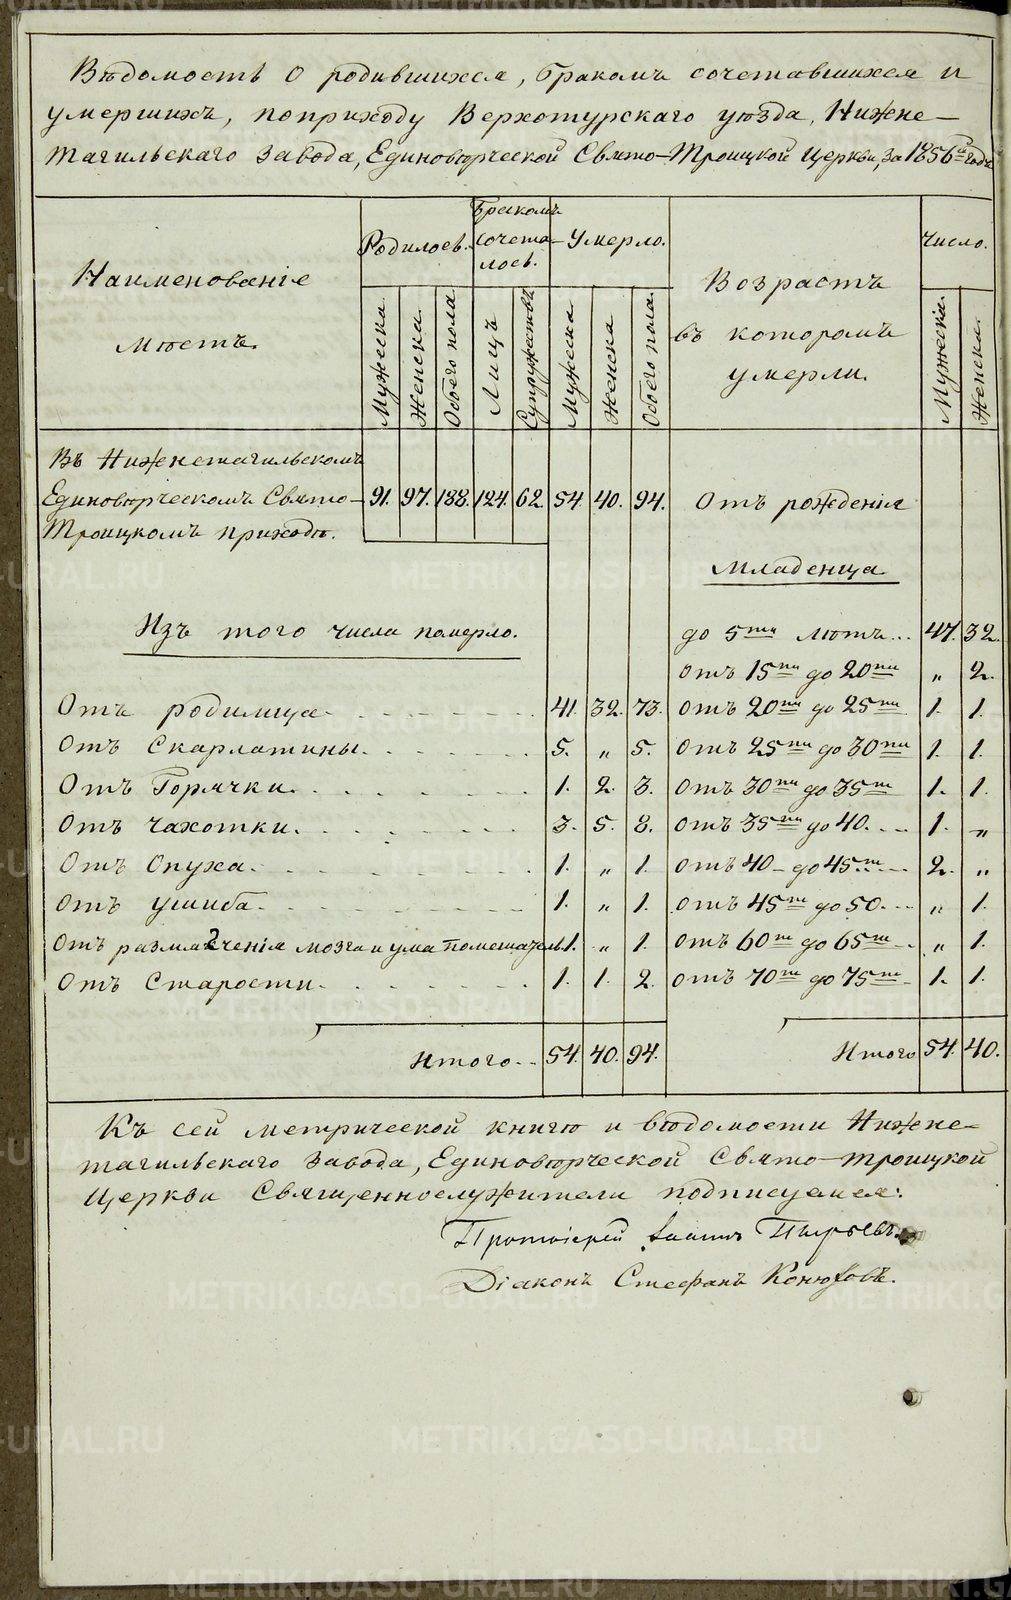 Вѣдомость о родившихся, бракомъ сочетавшихся и
умершихъ, поприходу Верхотурскаго уѣзда, Нижне-
тагильскаго завода, Единовѣрческой Свято-Троицкой Церкви, за 1856й годъ
Наименованіе
мѣстъ.
Родилось.
Бракомъ
сочета-
лось.
Умерло.
Возрастъ
въ которомъ
умерли.
Число.
Мужеска
Женска.
Обоего пола
Лицъ
Супружествъ
Мужеска
Женска
Обоего пола.
Мужеска.
Женска.
Въ Нижнетагильскомъ
Единовѣрческомъ Свято- 91. 97. 188. 124. 62. 54. 40. 94. Отъ рожденія
Троицкомъ приходѣ.
Младенца
Изъ того числа померло.
до 5ти лѣтъ... 47. 32.
Отъ 15ти до 20ти „ 2.
Отъ родимца. 41. 32. 73. Отъ 20ти до 25ти 1. 1.
Отъ Скарлатины. 5. „ 5. Отъ 25ти до 30ти 1. 1.
Отъ Горячки. 1. 2. 3. Отъ 30ти до 35ти 1. 1.
Отъ Чахотки. 3. 5. 8. Отъ 35ти до 40. 1. „
Отъ Опуха. 1. „ 1. Отъ 40 до 45ти 2. „
Отъ ушиба. 1. „ 1. Отъ 45ти до 50. „ 1.
Отъ размягченія мозга и ума помешатель. 1. „ 1. Отъ 60ти до 65ти „ 1.
Отъ Старости. 1. 1. 2. Отъ 70ти до 75ти 1. 1.
Итого.. 54. 40. 94. Итого 54. 40.
Къ сей метрической книгѣ и вѣдомости Нижне=
тагильскаго завода, Единовѣрческой Свято-троицкой
Церкви Священнослужители подписуемся:
Протоіерей Іоаннъ Пырьевъ.
Діаконъ Стефанъ Конюховъ.
METRIKI.GASO-URAL.RU